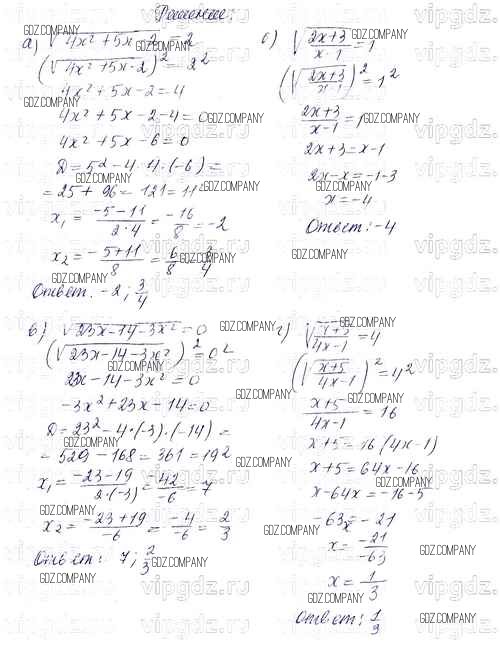 Решение:
а) √(4x² + 5x - 2) = 2
(√(4x² + 5x - 2))² = 2²
4x² + 5x - 2 = 4
4x² + 5x - 2 - 4 = 0
4x² + 5x - 6 = 0
D = 5² - 4·4·(-6) =
= 25 + 96 = 121 = 11²
x₁ = (-5-11)/(2·4) = -16/8 = -2
x₂ = (-5+11)/8 = 6/8 = 3/4
Ответ: -2; 3/4
б) √((2x+3)/(x-1)) = 1
(√((2x+3)/(x-1)))² = 1²
(2x+3)/(x-1) = 1
2x + 3 = x - 1
2x - x = -1 - 3
x = -4
Ответ: -4
в) √(23x - 14 - 3x²) = 0
(√(23x - 14 - 3x²))² = 0²
23x - 14 - 3x² = 0
-3x² + 23x - 14 = 0
D = 23² - 4·(-3)·(-14) =
= 529 - 168 = 361 = 19²
x₁ = (-23-19)/(2·(-3)) = -42/-6 = 7
x₂ = (-23+19)/-6 = -4/-6 = 2/3
Ответ: 7; 2/3
г) √((x+5)/(4x-1)) = 4
(√((x+5)/(4x-1)))² = 4²
(x+5)/(4x-1) = 16
x + 5 = 16(4x-1)
x + 5 = 64x - 16
x - 64x = -16 - 5
-63x = -21
x = -21/-63
x = 1/3
Ответ: 1/3
GDZ.COMPANY
vipgdz.ru